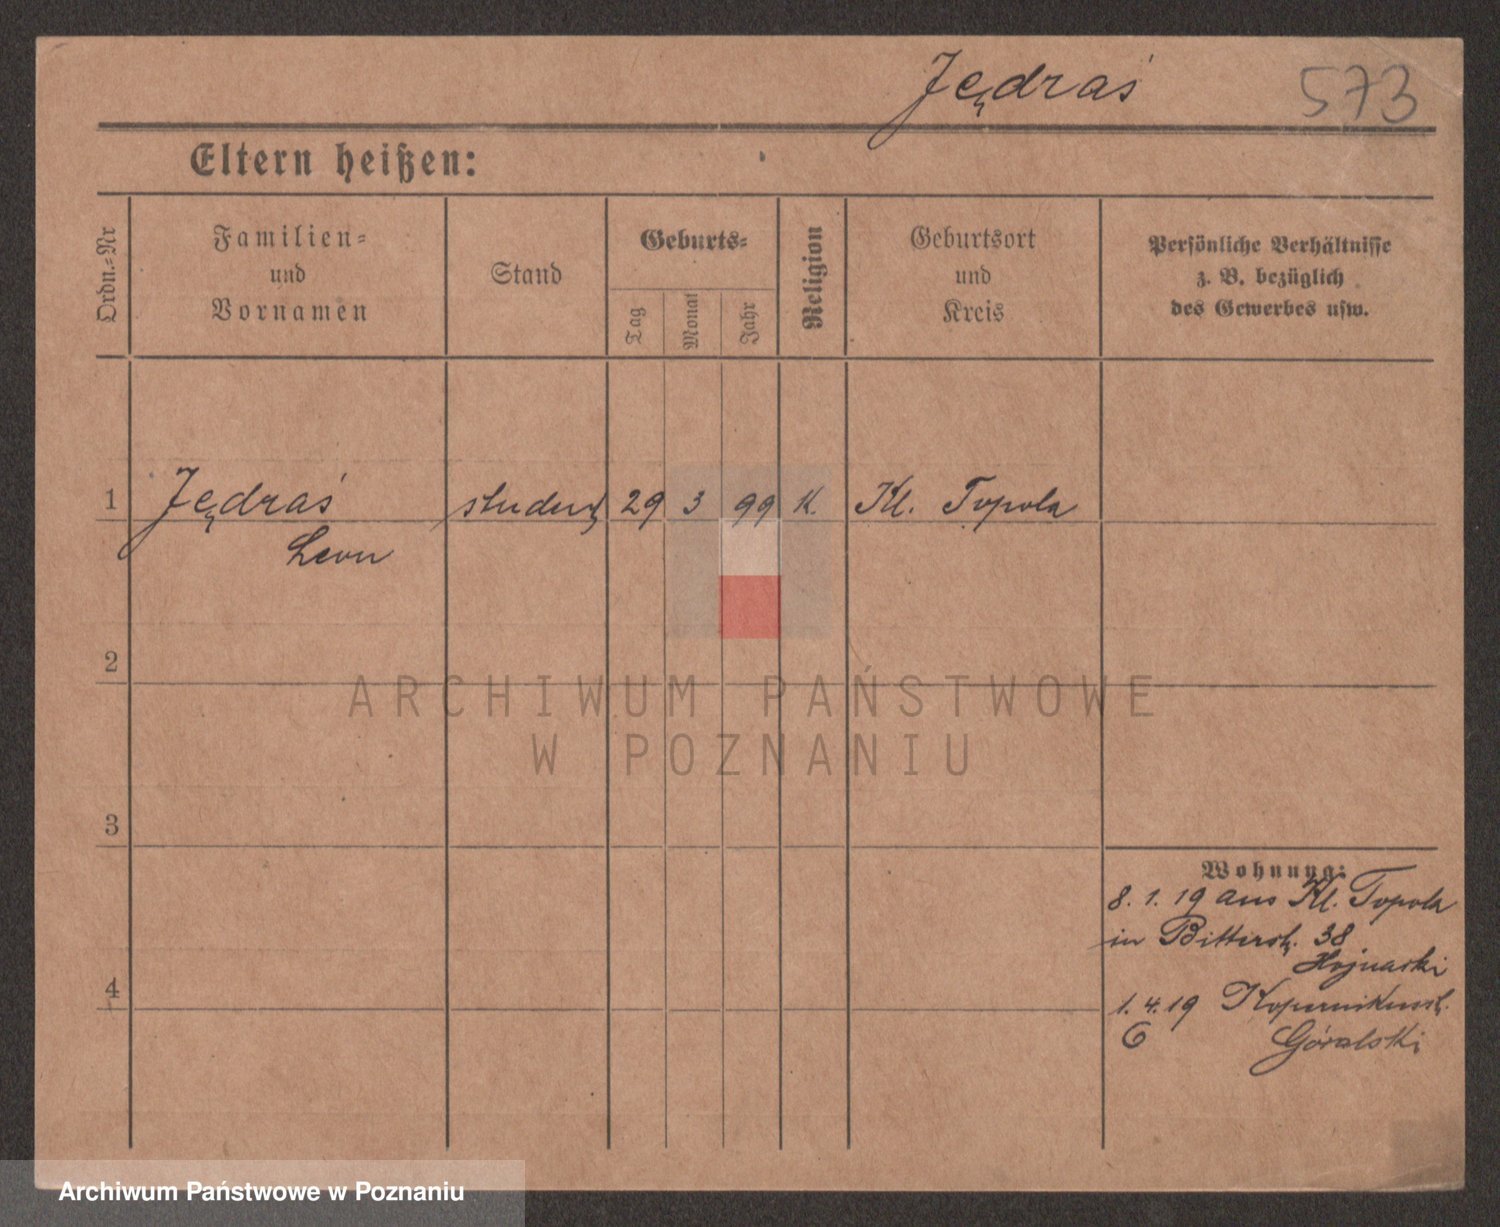 Jędraś 573
Eltern heißen:
Ordn.-Nr
Familien-
und
Vornamen
Stand
Geburts-
Tag
Monat
Jahr
Religion
Geburtsort
und
Kreis
Persönliche Verhältnisse
z. B. bezüglich
des Gewerbes usw.
1 Jędraś student 29 3 99 K. Kl. Topola
Leon
2
3
4
Wohnung:
8. 1. 19 aus Kl. Topola
in Bitterstr. 38
Hojnacki
1. 4. 19 Kopernikusstr.
6 Góralski
ARCHIWUM PAŃSTWOWE
W POZNANIU
Archiwum Państwowe w Poznaniu